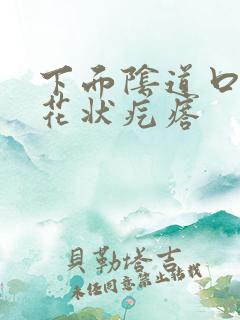 下面陰道口
花状疙瘩
貝勒塔吉
未经同意禁止转载